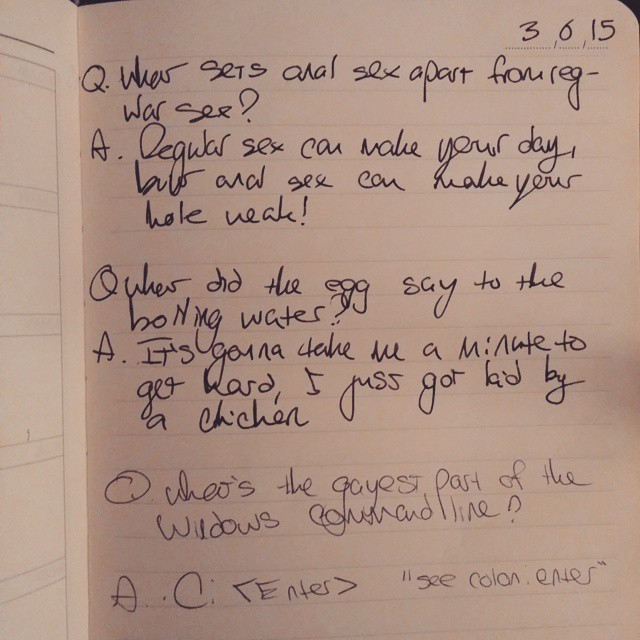 3 6 15
Q. What sets anal sex apart from reg-
ular sex?
A. Regular sex can make your day,
but anal sex can make your
hole weak!
Q What did the egg say to the
boiling water?
A. It's gonna take me a minute to
get hard, I just got laid by
a chicken
Q What's the gayest part of the
Windows command line?
A. C: <Enter> "see colon: enter"